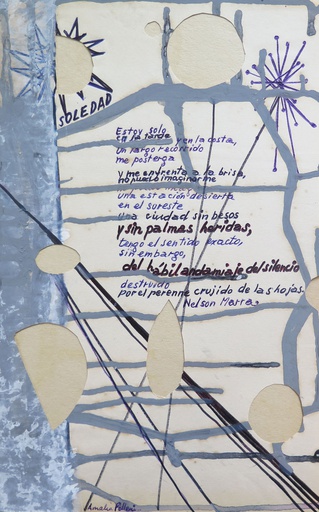 SOLEDAD
Estoy solo
en la tarde y en la costa,
un largo recorrido
me posterga
y me enfrenta a la brisa,
no puedo imaginarme
una estación desierta
en el sureste
una ciudad sin besos
y sin palmas heridas,
tengo el sentido exacto,
sin embargo,
del hábil andamiaje del silencio
destruido
por el perenne crujido de las hojas.
Nelson Marra.
Amalia